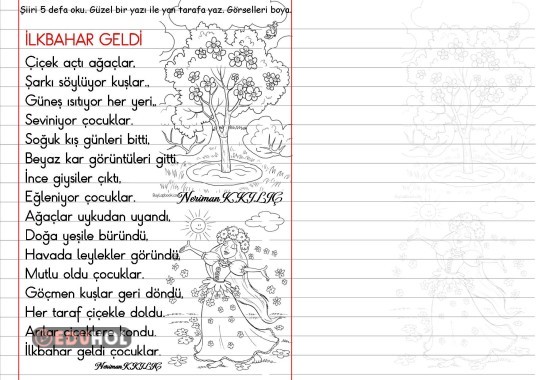 Şiiri 5 defa oku. Güzel bir yazı ile yan tarafa yaz. Görselleri boya.
İLKBAHAR GELDİ
Çiçek açtı ağaçlar,
Şarkı söylüyor kuşlar.,
Güneş ısıtıyor her yeri.,
Seviniyor çocuklar.
Soğuk kış günleri bitti,
Beyaz kar görüntüleri gitti.
İnce giysiler çıktı,
Eğleniyor çocuklar.
Neriman KKILIÇ
Ağaçlar uykudan uyandı,
Doğa yeşile büründü,
Havada leylekler göründü,
Mutlu oldu çocuklar.
Göçmen kuşlar geri döndü,
Her taraf çiçekle doldu.
Arılar çiçeklere kondu.
EDUHOL
İlkbahar geldi çocuklar.
Neriman KKILIÇ